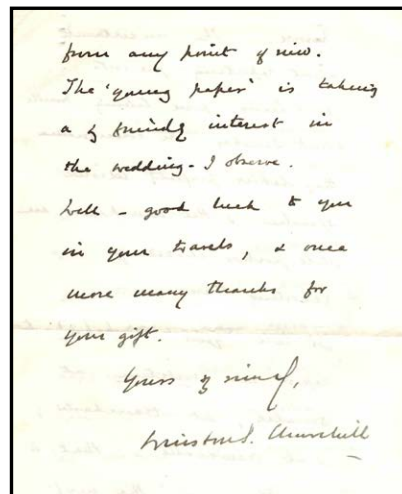 from any point of view.
The 'young paper' is taking
a friendly interest in
the wedding - I observe.
Well - good luck to you
in your travels, & once
more many thanks for
your gift.
Yours
Winston S. Churchill